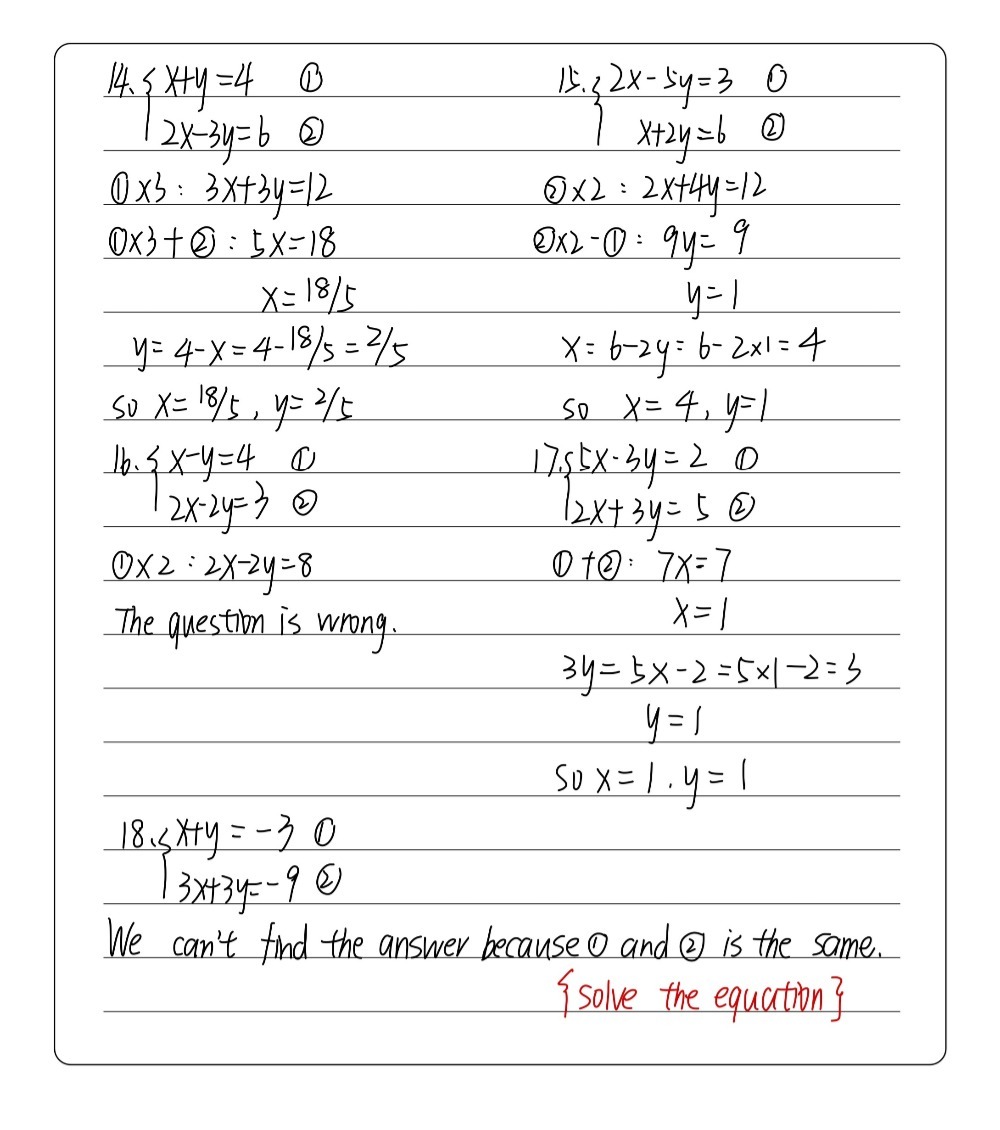 14. { x+y=4 ①
2x-3y=6 ②
①x3: 3x+3y=12
①x3+②: 5x=18
x=18/5
y=4-x=4-18/5=2/5
so x=18/5, y=2/5
15. { 2x-5y=3 ①
x+2y=6 ②
②x2: 2x+4y=12
②x2-①: 9y=9
y=1
x=6-2y=6-2x1=4
so x=4, y=1
16. { x-y=4 ①
2x-2y=3 ②
①x2: 2x-2y=8
The question is wrong.
17. { 5x-3y=2 ①
2x+3y=5 ②
①+②: 7x=7
x=1
3y=5x-2=5x1-2=3
y=1
So x=1. y=1
18. { x+y=-3 ①
3x+3y=-9 ②
We can't find the answer because ① and ② is the same.
{solve the equation}